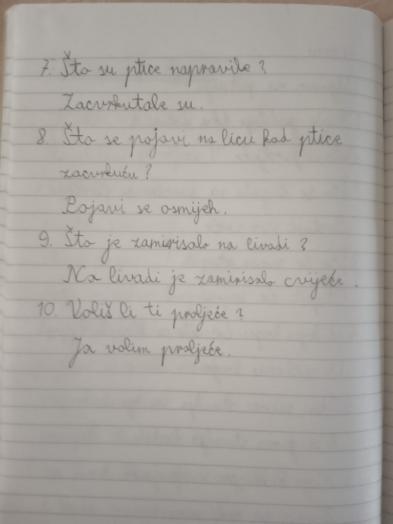 7. Što su ptice napravile?
Zacvrkutale su.
8. Što se pojavi na licu kad ptice
zacvrkuću?
Pojavi se osmijeh.
9. Što je zamirisalo na livadi?
Na livadi je zamirisalo cvijeće.
10. Voliš li ti proljeće?
Ja volim proljeće.